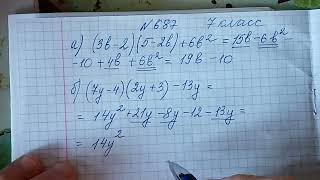 №687 7 класс
а) (3в-2)(5-2в)+6в²=15в-6в²-
-10+4в+6в²=19в-10
б) (7y-4)(2y+3)-13y=
=14y²+21y-8y-12-13y=
=14y²